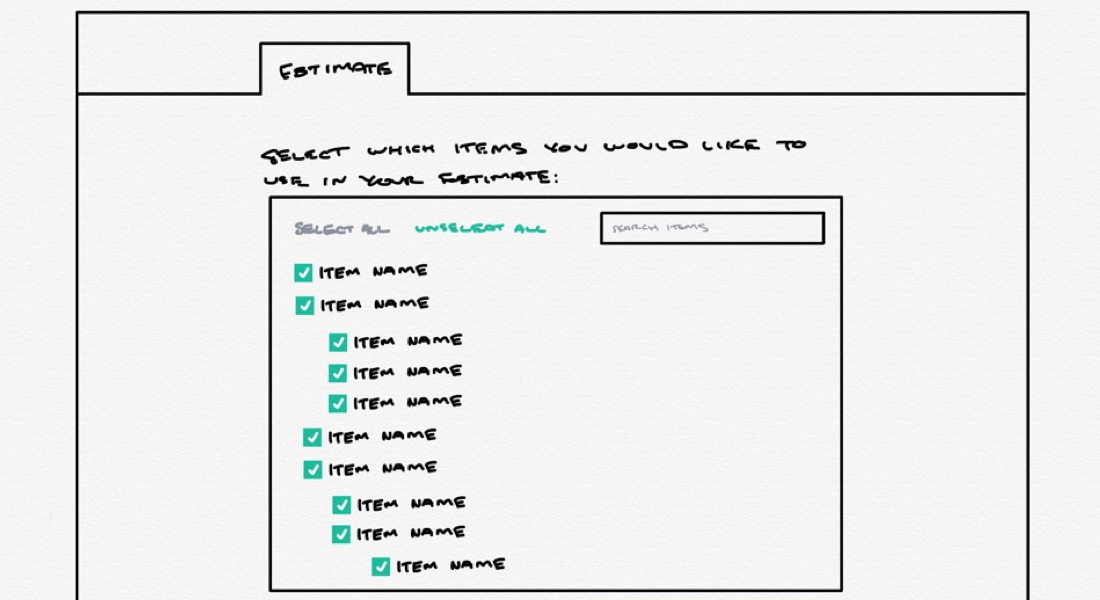 ESTIMATE
SELECT WHICH ITEMS YOU WOULD LIKE TO
USE IN YOUR ESTIMATE:
SELECT ALL UNSELECT ALL SEARCH ITEMS
ITEM NAME
ITEM NAME
ITEM NAME
ITEM NAME
ITEM NAME
ITEM NAME
ITEM NAME
ITEM NAME
ITEM NAME
ITEM NAME